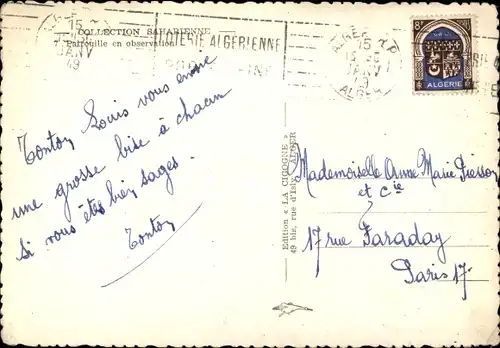 COLLECTION SAHARIENNE
7. Patrouille en observation
15
JANV
49
ALGERIENNE
Tonton Louis vous envoie
une grosse bise à chacun
si vous êtes bien sages.
Tonton
Edition « LA CIGOGNE »
49 bis, rue d'Isly, ALGER
ALGER R.P.
15
JANV
ALGER
8
ALGERIE
Mademoiselle Anne Marie
et Cie
17 rue Faraday
Paris 17-